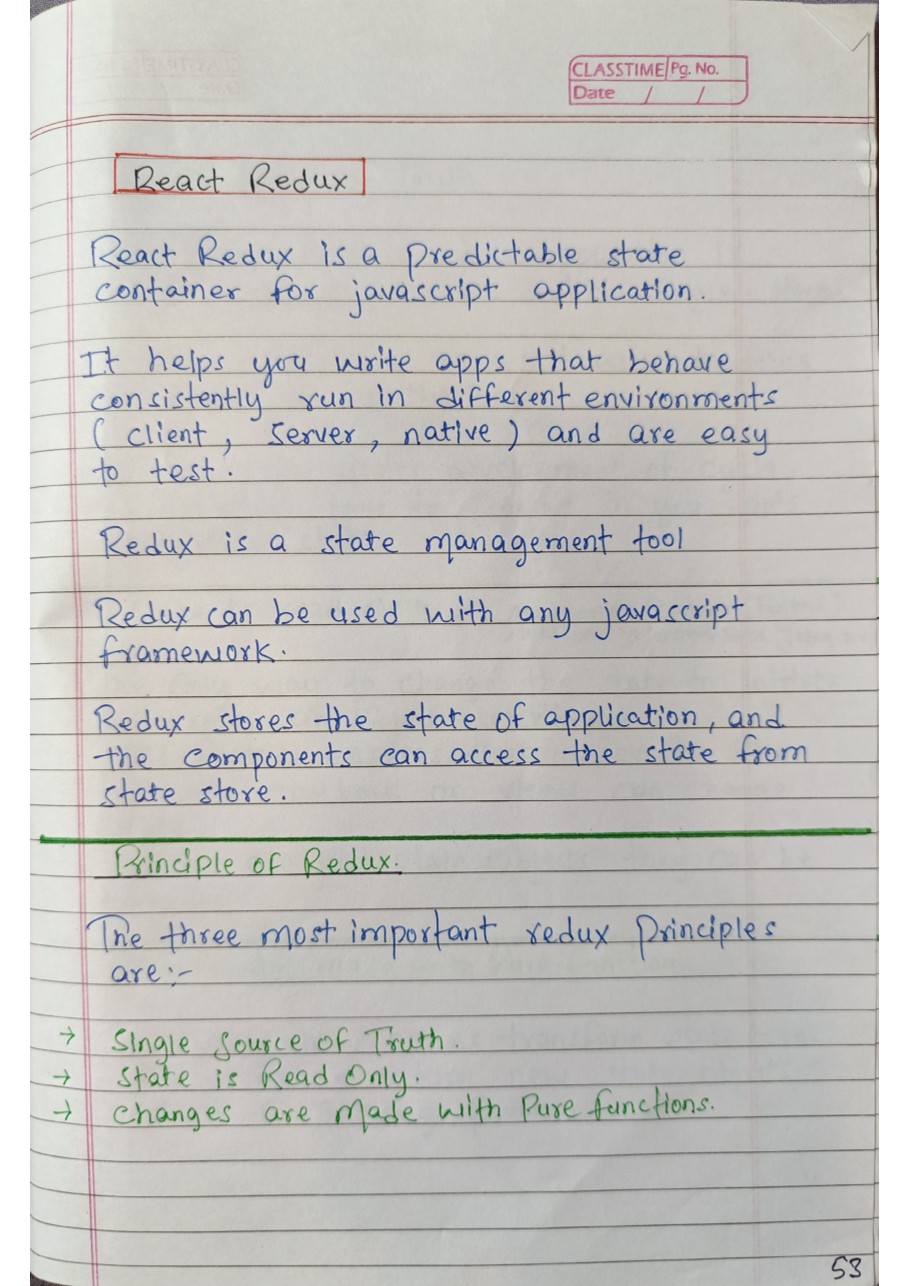 CLASSTIME Pg. No.
Date / /
React Redux
React Redux is a predictable state
container for javascript application.
It helps you write apps that behave
consistently run in different environments
( client , Server , native ) and are easy
to test .
Redux is a state management tool
Redux can be used with any javascript
framework.
Redux stores the state of application, and
the components can access the state from
state store .
Principle of Redux.
The three most important redux Principles
are :-
→ Single Source of Truth .
→ State is Read Only .
→ Changes are Made with Pure functions.
53